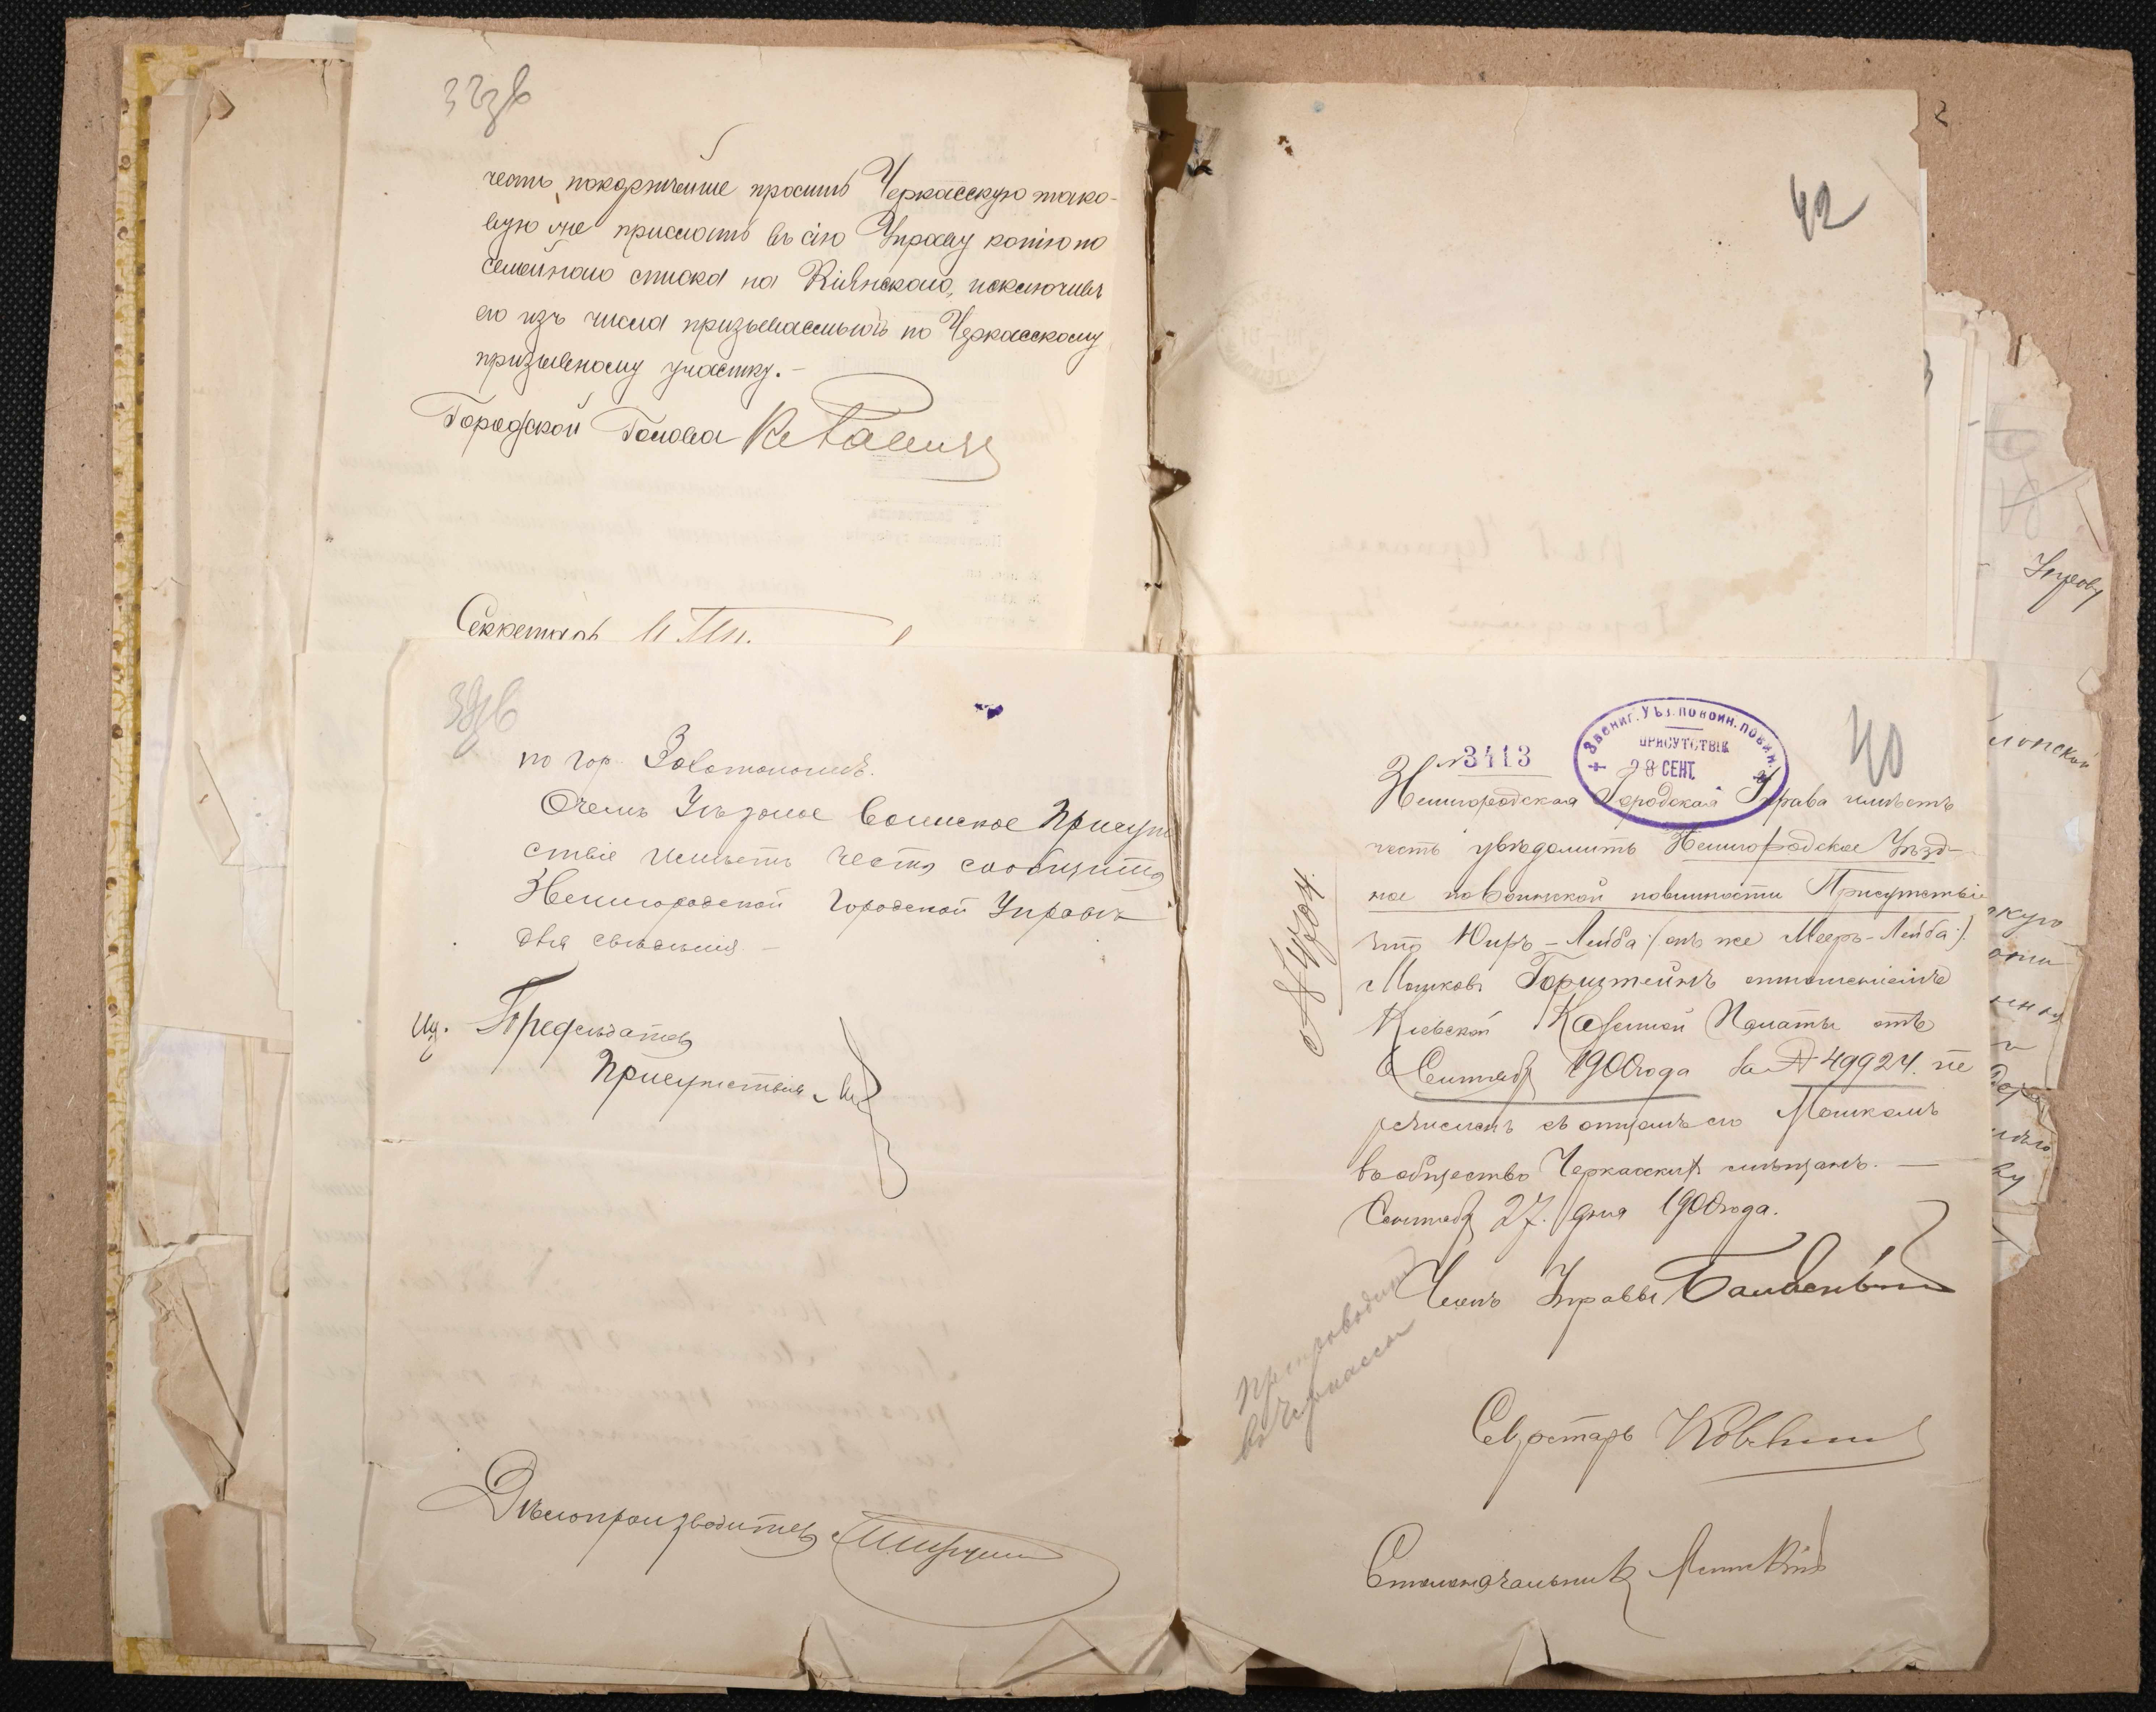 честь покорнѣйше просить Черкасскую тако-
вую же прислать въ сію Управу копію по
семейнаго списка на Кіянскаго, исключивъ
его изъ числа призываемыхъ по Черкасскому
призывному участку.-
Городской Голова
Секретарь
42
по гор. Золотоношѣ.
О чемъ Уѣздное Воинское Присут
ствіе имѣетъ честь сообщить
Звенигородской Городской Управѣ
для свѣдѣнія. -
Предсѣдатель
Присутствія
Дѣлопроизводитель
40
Звениг. Уѣз. по воин. повин.
ПРИСУТСТВІЕ
28 СЕНТ.
№ 3413
Звенигородская Городская Управа имѣетъ
честь увѣдомить Звенигородское Уѣзд-
ное по воинской повинности Присутствіе
что Юдъ-Лейба /:онъ же Мееръ-Лейба:/
Мошковъ Горштейнъ отношеніемъ
Кіевской Казенной Палаты отъ
6 Сентября 1900 года за № 49924. пе
речисленъ съ отцомъ его Мошкомъ
въ общество Черкасскихъ мѣщанъ. —
Сентября 27. дня 1900 года.
Членъ Управы
Секретарь
Столоначальникъ
№ 4704.
Препроводить
въ Черкассы
Управу